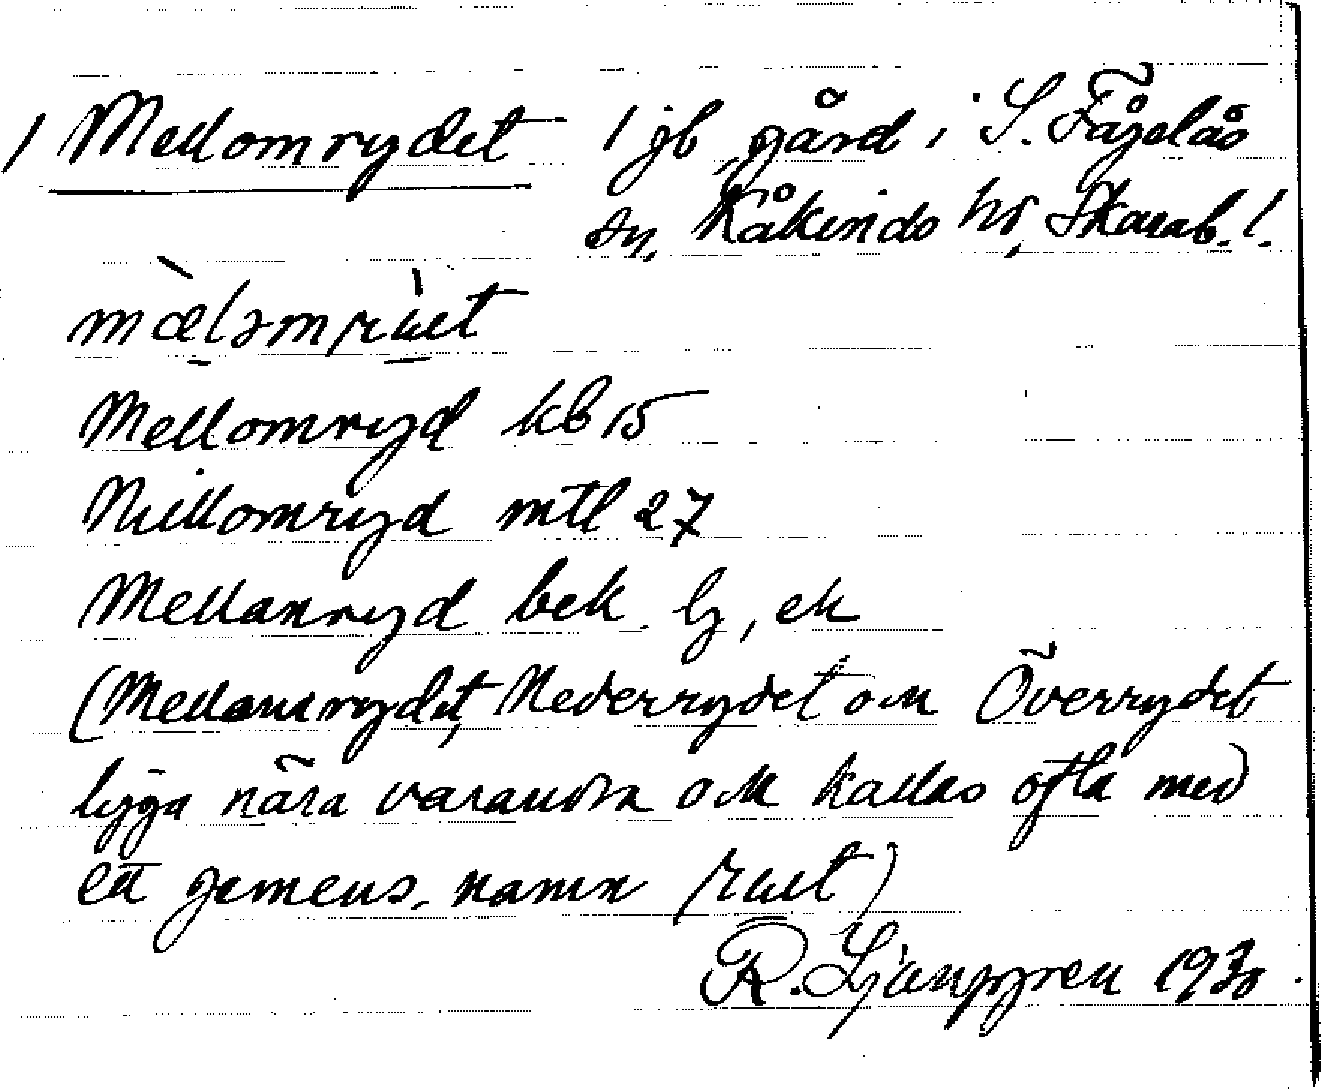 / Mellomrydet / jb. gård i S. Fågelås
sn, Kåkinds hd, Skarab. l.
mæ̀ləmrùet
Mellomryd kb 15
Millomryd mtl 27
Mellanryd bek. lj, ek
(Mellomrydet, Nederrydet och Överrydet
ligga nära varandra och kallas ofta med
ett gemens. namn ruet)
R. Ljunggren 1930.